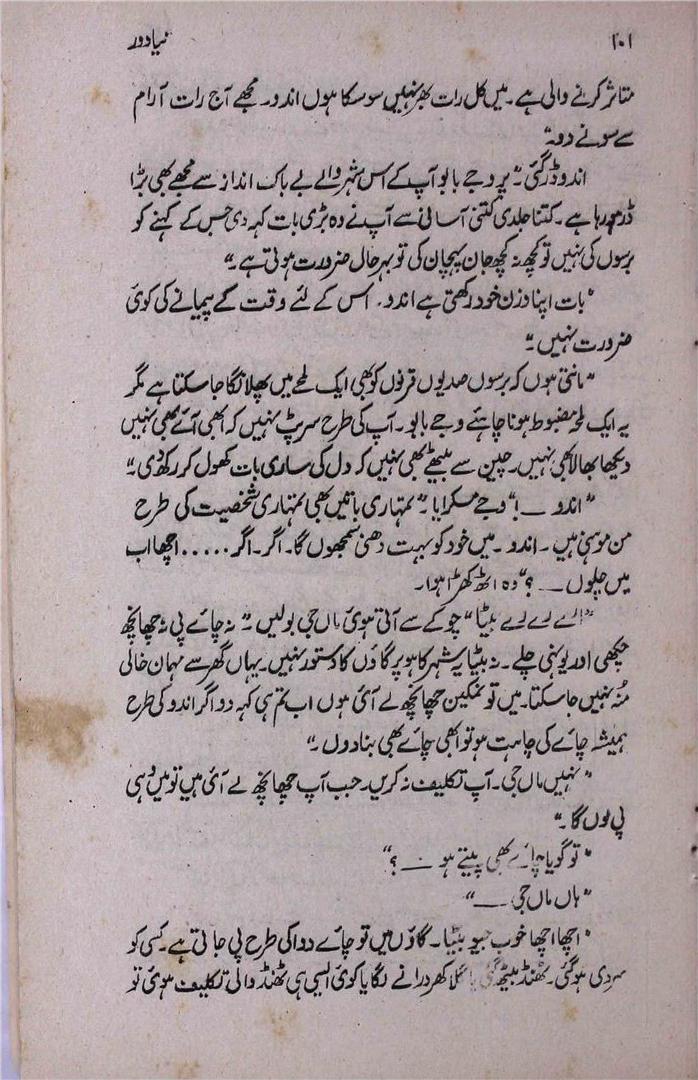 ۱۰۱ نیا دور
متاثر کرنے والی ہے۔ میں کل رات بھر نہیں سو سکا ہوں اندو۔ مجھے آج رات آرام
سے سونے دو۔"
اندو ڈر گئی۔ "پر وجے بابو آپ کے اس شہر والے بے باک انداز سے مجھے بھی بڑا
ڈر ہو رہا ہے۔ کتنا جلدی کتنی آسانی سے آپ نے وہ بڑی بات کہہ دی جس کے کہنے کو
برسوں کی نہیں تو کچھ نہ کچھ جان پہچان کی تو بہرحال ضرورت ہوتی ہے۔"
"بات اپنا وزن خود رکھتی ہے اندو۔ اس کے لئے وقت کے پیمانے کی کوئی
ضرورت نہیں۔"
"مانتی ہوں کہ برسوں صدیوں قرنوں کو بھی ایک لمحے میں پھلانگا جا سکتا ہے مگر
یہ ایک لمحہ مضبوط ہونا چاہئے وجے بابو۔ آپ کی طرح سرپٹ نہیں کہ ابھی آئے بھی نہیں
دیکھا بھالا بھی نہیں۔ چین سے بیٹھے بھی نہیں کہ دل کی ساری بات کھول کر رکھ دی۔"
"اندو ــ!" وجے مسکرایا۔ "تمہاری باتیں بھی تمہاری شخصیت کی طرح
من موہنی ہیں۔ اندو۔ میں خود کو بہت دھنی سمجھوں گا۔ اگر۔ اگر..... اچھا اب
میں چلوں ــ؟" وہ اٹھ کھڑا ہوا۔
"ارے رے رے بیٹا" چوکے سے آتی ہوئی ماں جی بولیں۔ "نہ چائے پی نہ چھانچھ
چکھی اور یونہی چلے۔ نہ بیٹا یہ شہر کا ہو پر گاؤں کا دستور نہیں۔ یہاں گھر سے مہمان خالی
منہ نہیں جا سکتا۔ میں تو نمکین چھانچھ لے آئی ہوں اب تم ہی کہہ دو اگر اندو کی طرح
ہمیشہ چائے کی چاہت ہو تو ابھی چائے بھی بنا دوں۔"
"نہیں ماں جی۔ آپ تکلیف نہ کریں۔ جب آپ چھانچھ لے آئی ہیں تو میں وہی
پی لوں گا۔"
"تو گویا چائے بھی پیتے ہو ــ؟"
"ہاں ماں جی ــ"
"اچھا اچھا خوب جیو بیٹا۔ گاؤں میں تو چائے دوا کی طرح پی جاتی ہے۔ کسی کو
سردی ہو گئی۔ ٹھنڈ بیٹھ گئی یا گلا کھردرانے لگا یا کوئی ایسی ہی ٹھنڈ والی تکلیف ہوئی تو